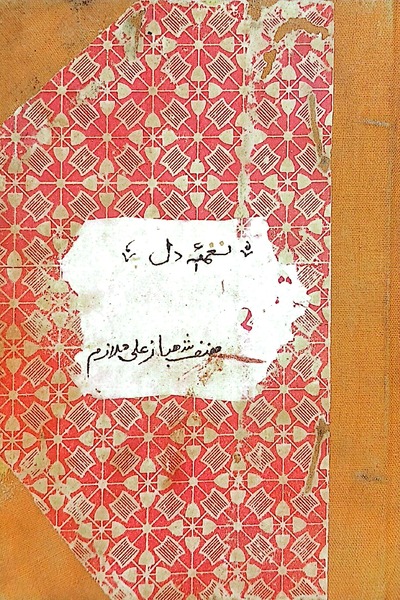 نغمۂ دل
مصنف شهباز علی ملازم